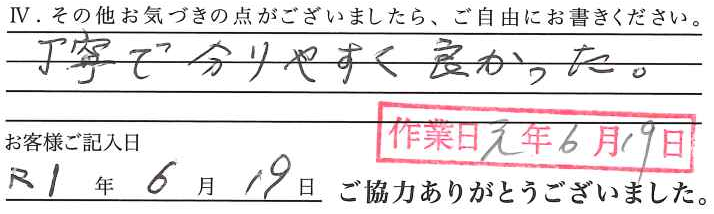 Ⅳ.その他お気づきの点がございましたら、ご自由にお書きください。
丁寧で分りやすく良かった。
作業日元年6月19日
お客様ご記入日
R1年6月19日 ご協力ありがとうございました。